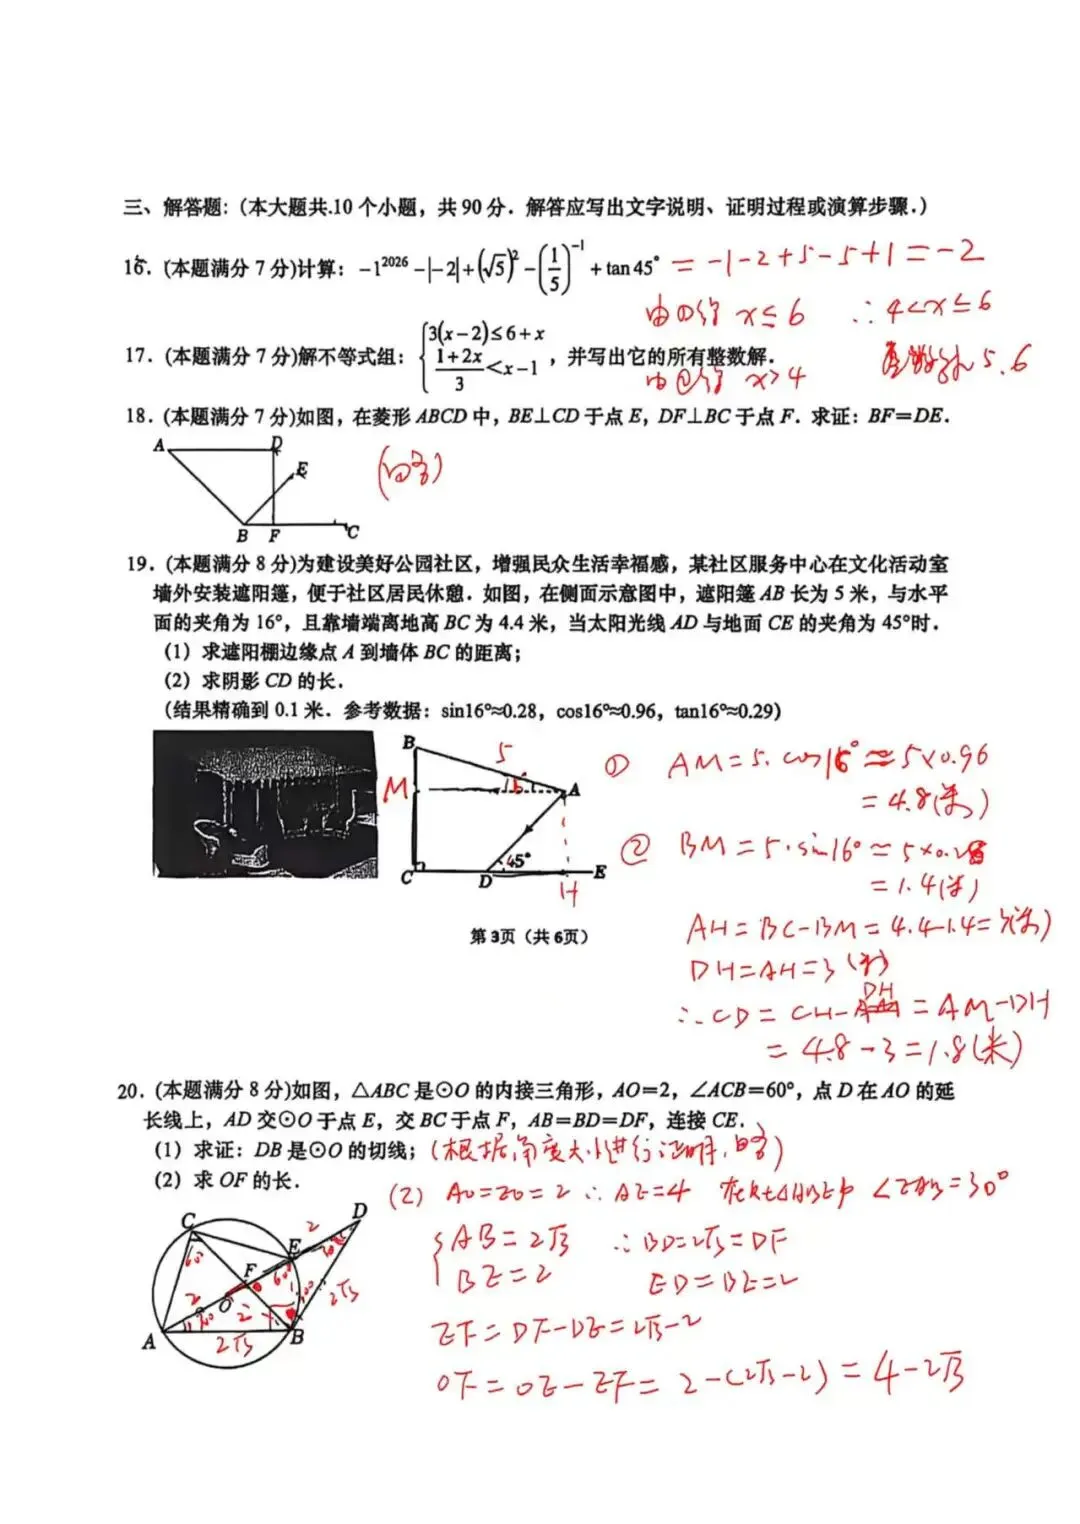 三、解答题:(本大题共.10 个小题，共 90 分．解答应写出文字说明、证明过程或演算步骤.)
16.(本题满分 7 分)计算: -1^2026 -|-2|+(√5)^2 -(1/5)^-1 + tan 45° = -1-2+5-5+1=-2
由①得 x≤6 ∴ 4<x≤6
17.(本题满分 7 分)解不等式组: { 3(x-2)≤6+x , (1+2x)/3 <x-1 ，并写出它的所有整数解.
由②得 x>4 5.6
18.(本题满分 7 分)如图，在菱形 ABCD 中，BE⊥CD 于点 E，DF⊥BC 于点 F．求证: BF=DE.
A D E B F C
(略)
19.(本题满分 8 分)为建设美好公园社区，增强民众生活幸福感，某社区服务中心在文化活动室
墙外安装遮阳篷，便于社区居民休憩．如图，在侧面示意图中，遮阳篷 AB 长为 5 米，与水平
面的夹角为 16°，且靠墙端离地高 BC 为 4.4 米，当太阳光线 AD 与地面 CE 的夹角为 45°时．
(1) 求遮阳棚边缘点 A 到墙体 BC 的距离;
(2) 求阴影 CD 的长.
(结果精确到 0.1 米．参考数据: sin16°≈0.28，cos16°≈0.96，tan16°≈0.29)
B 5 M 16° A 45° C D H E
① AM=5·cos16°≈5×0.96
=4.8(米)
② BM=5·sin16°≈5×0.28
=1.4(米)
第 3页（共 6页）
AH=BC-BM=4.4-1.4=3(米)
DH=AH=3(米)
∴CD=CH-DH=AM-DH
=4.8-3=1.8(米)
20.(本题满分 8 分)如图，△ABC 是⊙O 的内接三角形，AO=2，∠ACB=60°，点 D 在 AO 的延
长线上，AD 交⊙O 于点 E，交 BC 于点 F，AB=BD=DF，连接 CE.
(1) 求证: DB 是⊙O 的切线; (根据角度大小进行证明,略)
(2) 求 OF 的长.
(2) AO=EO=2 ∴AE=4 在Rt△ABE中 ∠EAB=30°
{ AB=2√3 ∴BD=2√3=DF
BE=2 ED=BE=2
EF=DF-DE=2√3-2
OF=OE-EF=2-(2√3-2)=4-2√3
C D E F O A B 2 2 2 60 2√3 2√3